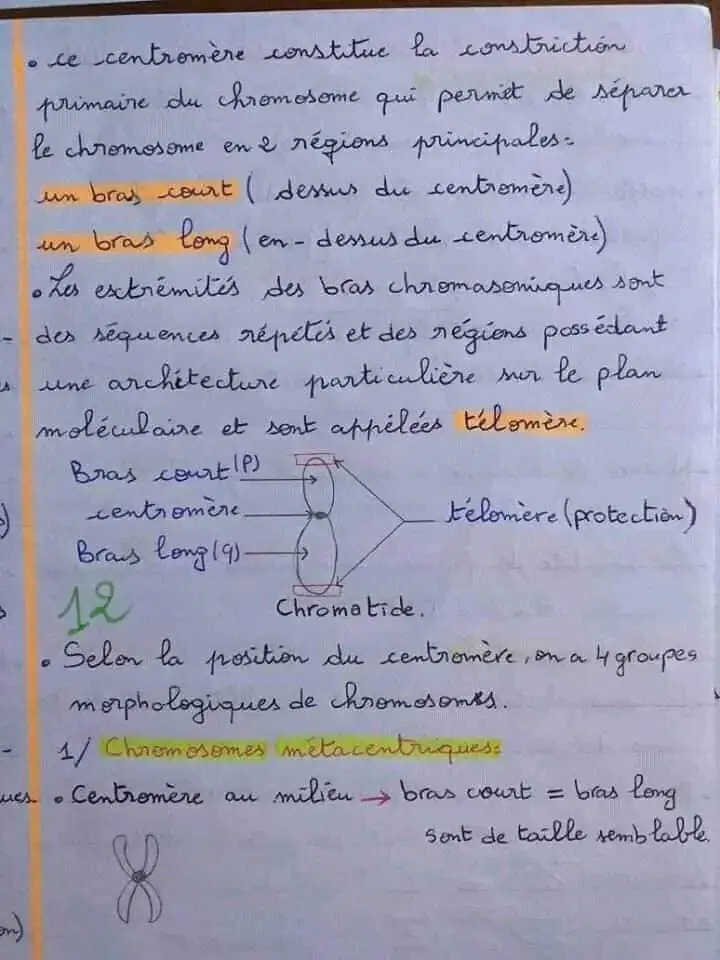 • ce centromère constitue la constriction
primaire du chromosome qui permet de séparer
le chromosome en 2 régions principales:
un bras court ( dessus du centromère)
un bras long (en-dessus du centromère)
• Les extrémités des bras chromasomiques sont
des séquences répétés et des régions possédant
une architecture particulière sur le plan
moléculaire et sont appélées télomère.
Bras court (p)
centromère
Bras long (q)
télomère (protection)
Chromatide.
12
• Selon la position du centromère, on a 4 groupes
morphologiques de chromosomes.
1/ Chromosomes métacentriques:
• Centromère au milieu → bras court = bras long
sont de taille semblable.